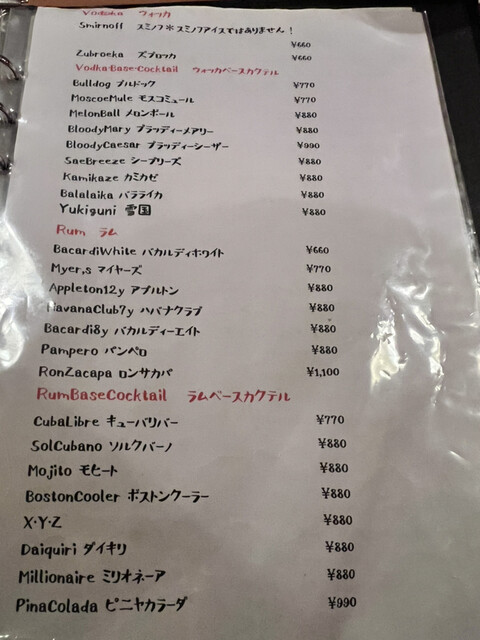 Vodska ウォッカ
Smirnoff スミノフ＊スミノフアイスではありません！
¥660
Zubroeka ズブロッカ ¥660
Vodka・Base・Cocktail ウォッカベースカクテル
Bulldog ブルドック ¥770
MoscoeMule モスコミュール ¥770
MelonBall メロンボール ¥880
BloodyMary ブラッディーメアリー ¥880
BloodyCaesar ブラッディーシーザー ¥990
SaeBreeze シーブリーズ ¥880
Kamikaze カミカゼ ¥880
Balalaika バラライカ ¥880
Yukiguni 雪国 ¥880
Rum ラム
BacardiWhite バカルディホワイト ¥660
Myer,s マイヤーズ ¥770
Appleton12y アプルトン ¥880
HavanaClub7y ハバナクラブ ¥880
Bacardi8y バカルディーエイト ¥880
Pampero パンペロ ¥880
RonZacapa ロンサカパ ¥1,100
RumBaseCocktail ラムベースカクテル
CubaLibre キューバリバー ¥770
SolCubano ソルクバーノ ¥880
Mojito モヒート ¥880
BostonCooler ボストンクーラー ¥880
X・Y・Z ¥880
Daiquiri ダイキリ ¥880
Millionaire ミリオネーア ¥880
PinaColada ピニャカラーダ ¥990